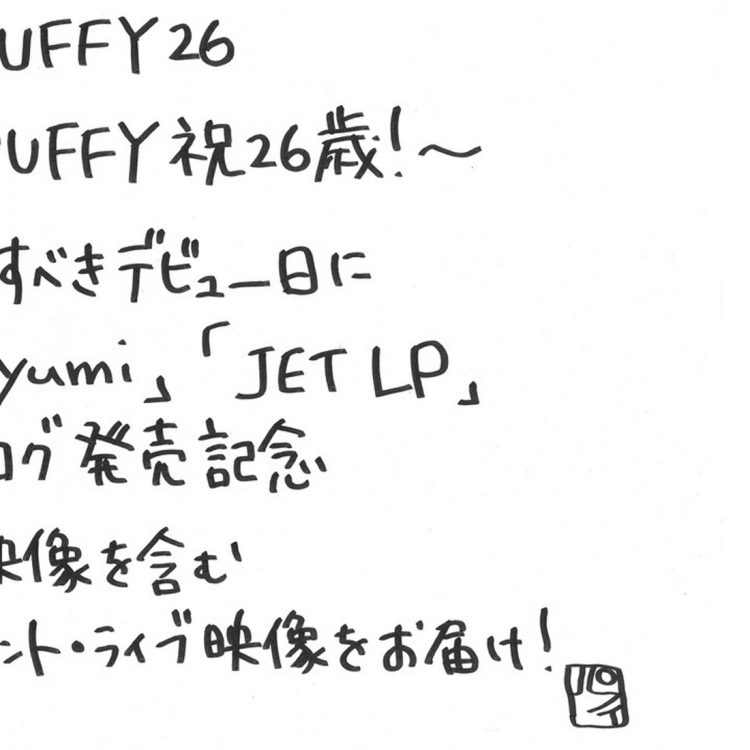 UFFY26
UFFY祝26歳!〜
すべきデビュー日に
yumi」「JET LP」
ログ発売記念
映像を含む
ント・ライブ映像をお届け!